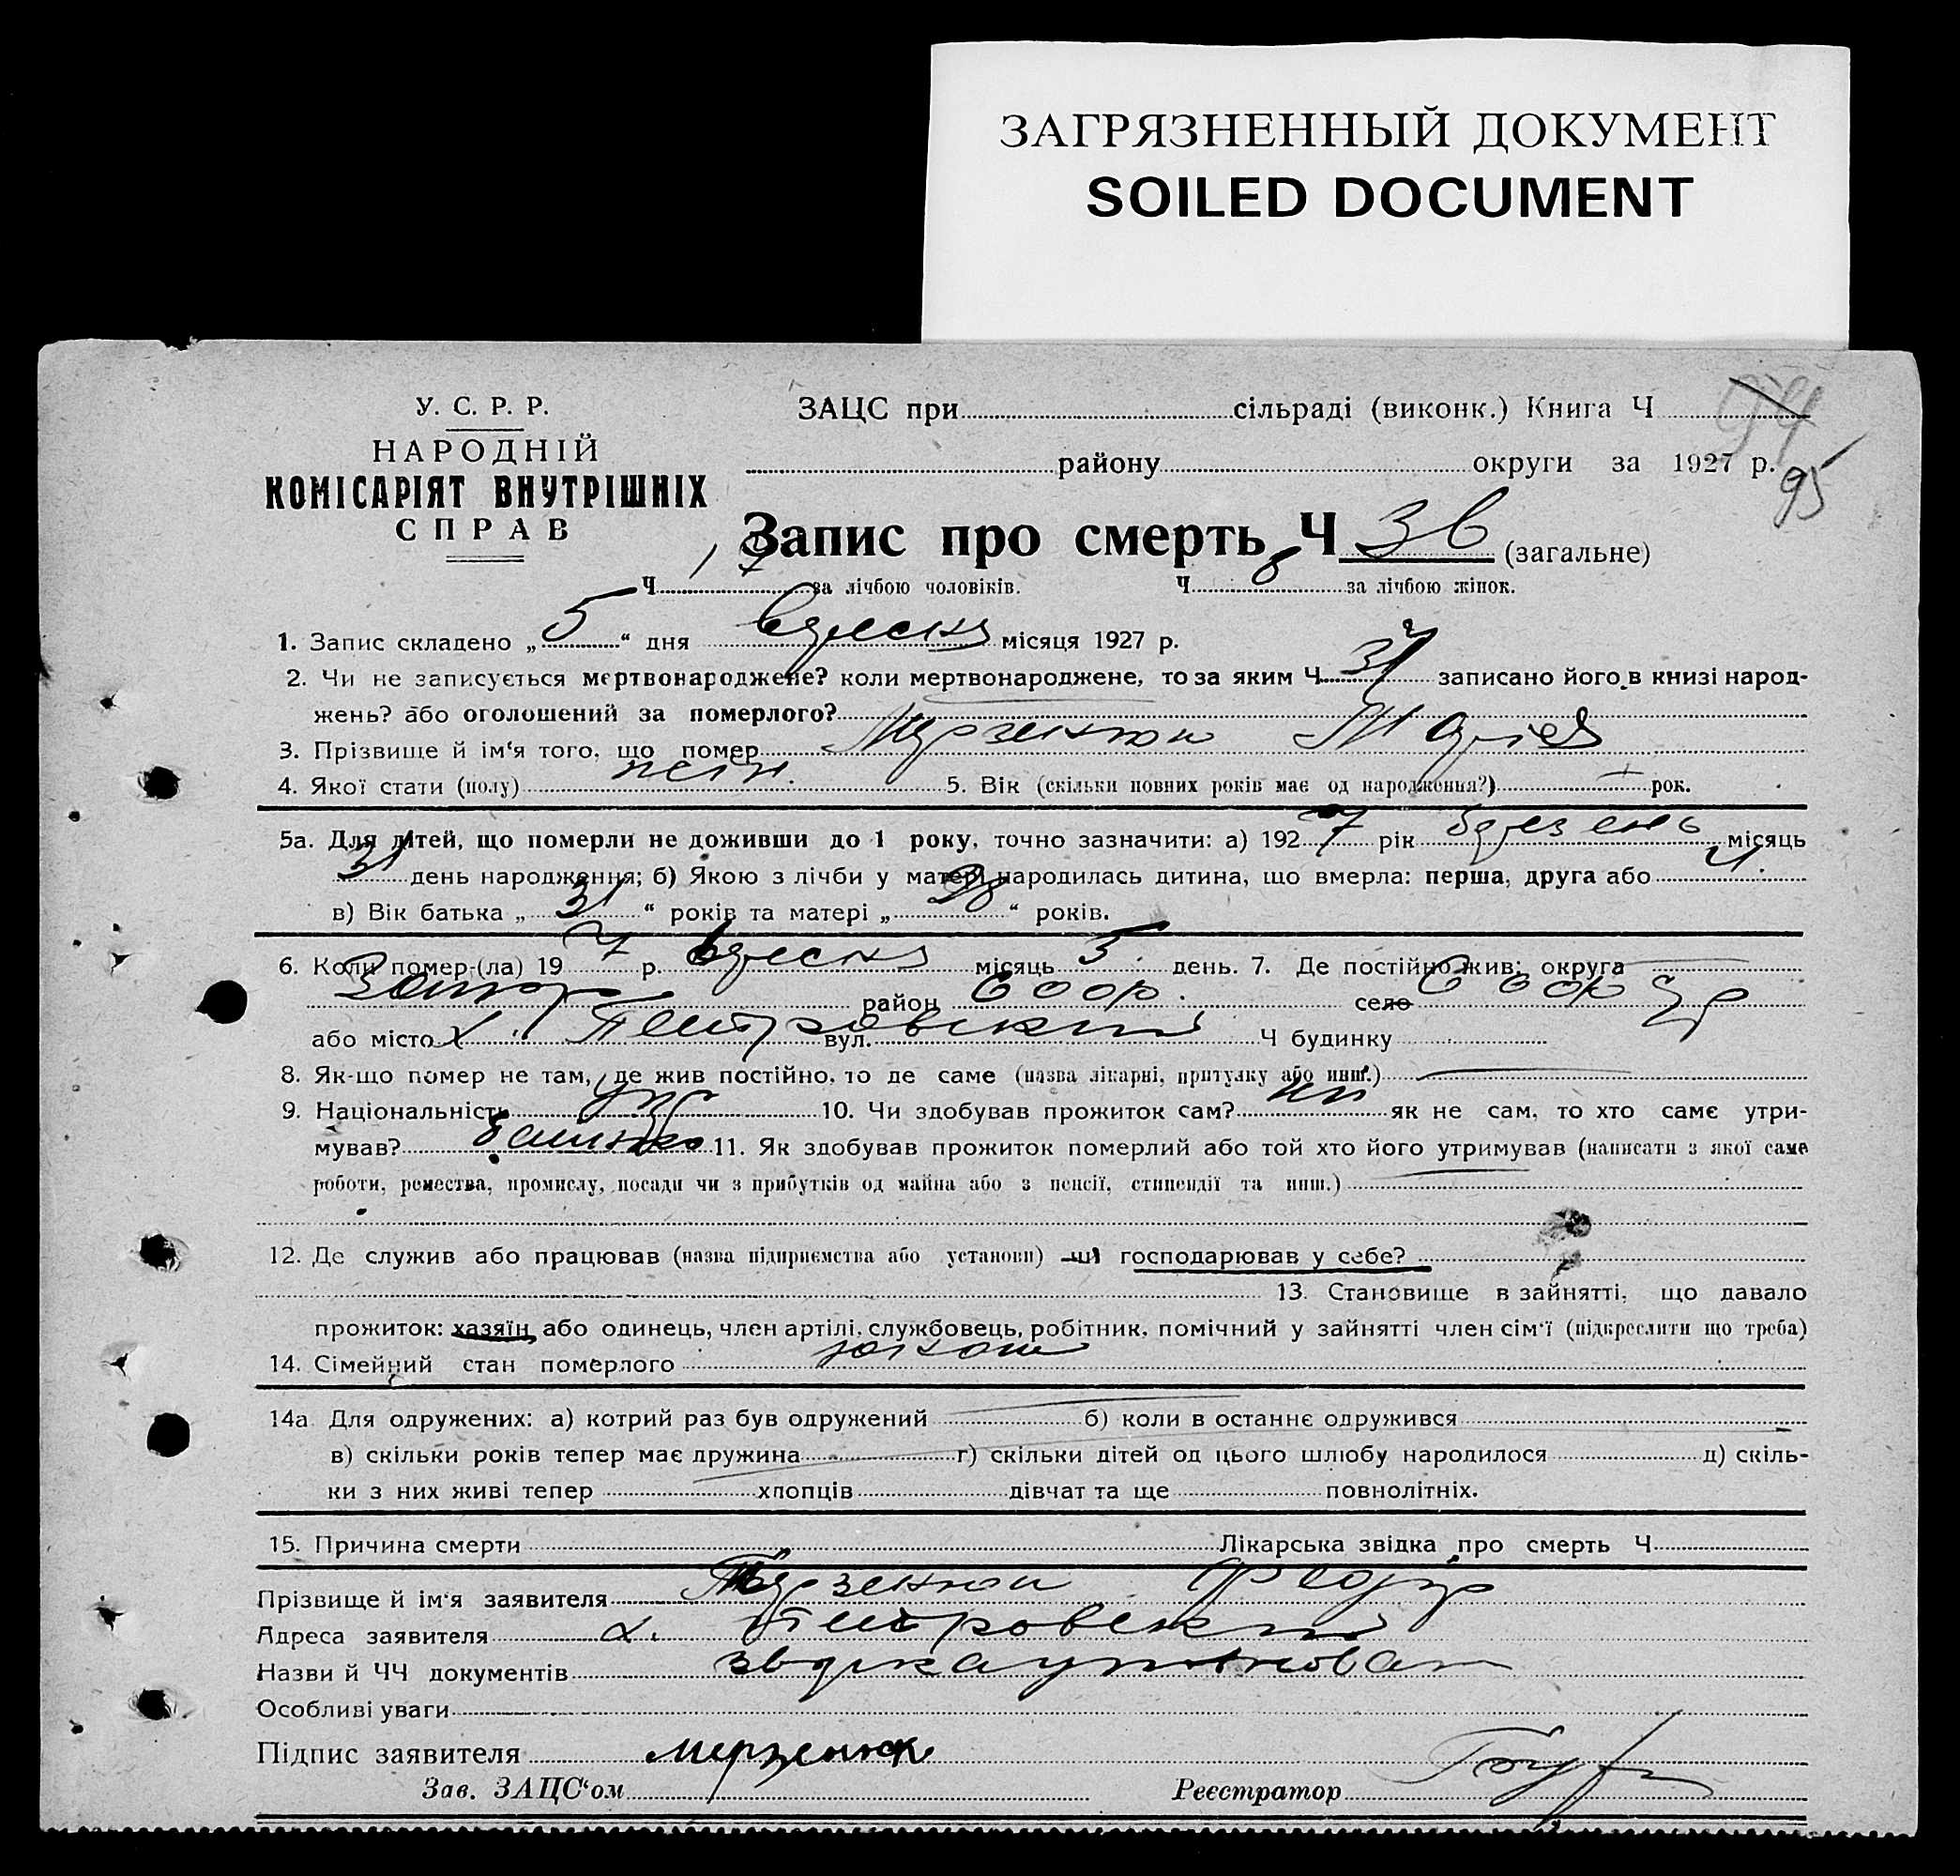 ЗАГРЯЗНЕННЫЙ ДОКУМЕНТ
SOILED DOCUMENT
У. С. Р. Р.
НАРОДНІЙ
КОМІСАРІЯТ ВНУТРІШНІХ
СПРАВ
ЗАЦС при сільраді (виконк.) Книга Ч 94
району округи за 1927 р. 95
Запис про смерть Ч (загальне)
Ч 17 за лічбою чоловіків. Ч за лічбою жінок.
1. Запис складено „ 5 “ дня місяця 1927 р.
2. Чи не записується мертвонароджене? коли мертвонароджене, то за яким Ч записано його в книзі народ-
жень? або оголошений за померлого?
3. Прізвище й ім‘я того, що помер
4. Якої стати (полу) 5. Вік (скільки повних років має од народження?) рок.
5а. Для дітей, що померли не доживши до 1 року, точно зазначити: а) 192 7 рік березень місяць
31 день народження; б) Якою з лічби у матері народилась дитина, що вмерла: перша, друга або 4.
в) Вік батька „ 31 “ років та матері „ “ років.
6. Коли помер-(ла) 19 7 р. місяць 5 день. 7. Де постійно жив: округа
Запор район село
або місто х. Петровский вул. Ч будинку
8. Як-що помер не там, де жив постійно, то де саме (назва лікарні, притулку або инш.)
9. Національність 10. Чи здобував прожиток сам? ні як не сам, то хто саме утри-
мував? батько 11. Як здобував прожиток померлий або той хто його утримував (написати з якої саме
роботи, ремества, промислу, посади чи з прибутків од майна або з пенсії, стипендії та инш.)
12. Де служив або працював (назва підприємства або установи) чи господарював у себе?
13. Становище в зайнятті, що давало
прожиток: хазяїн або одинець, член артілі, службовець, робітник, помічний у зайнятті член сім‘ї (підкреслити що треба)
14. Сімейний стан померлого
14а Для одружених: а) котрий раз був одружений б) коли в останнє одружився
в) скільки років тепер має дружина г) скільки дітей од цього шлюбу народилося д) скіль-
ки з них живі тепер хлопців дівчат та ще повнолітніх.
15. Причина смерти Лікарська звідка про смерть Ч
Прізвище й ім‘я заявителя
Адреса заявителя х. Петровский
Назви й ЧЧ документів
Особливі уваги
Підпис заявителя
Зав. ЗАЦС‘ом Реєстратор